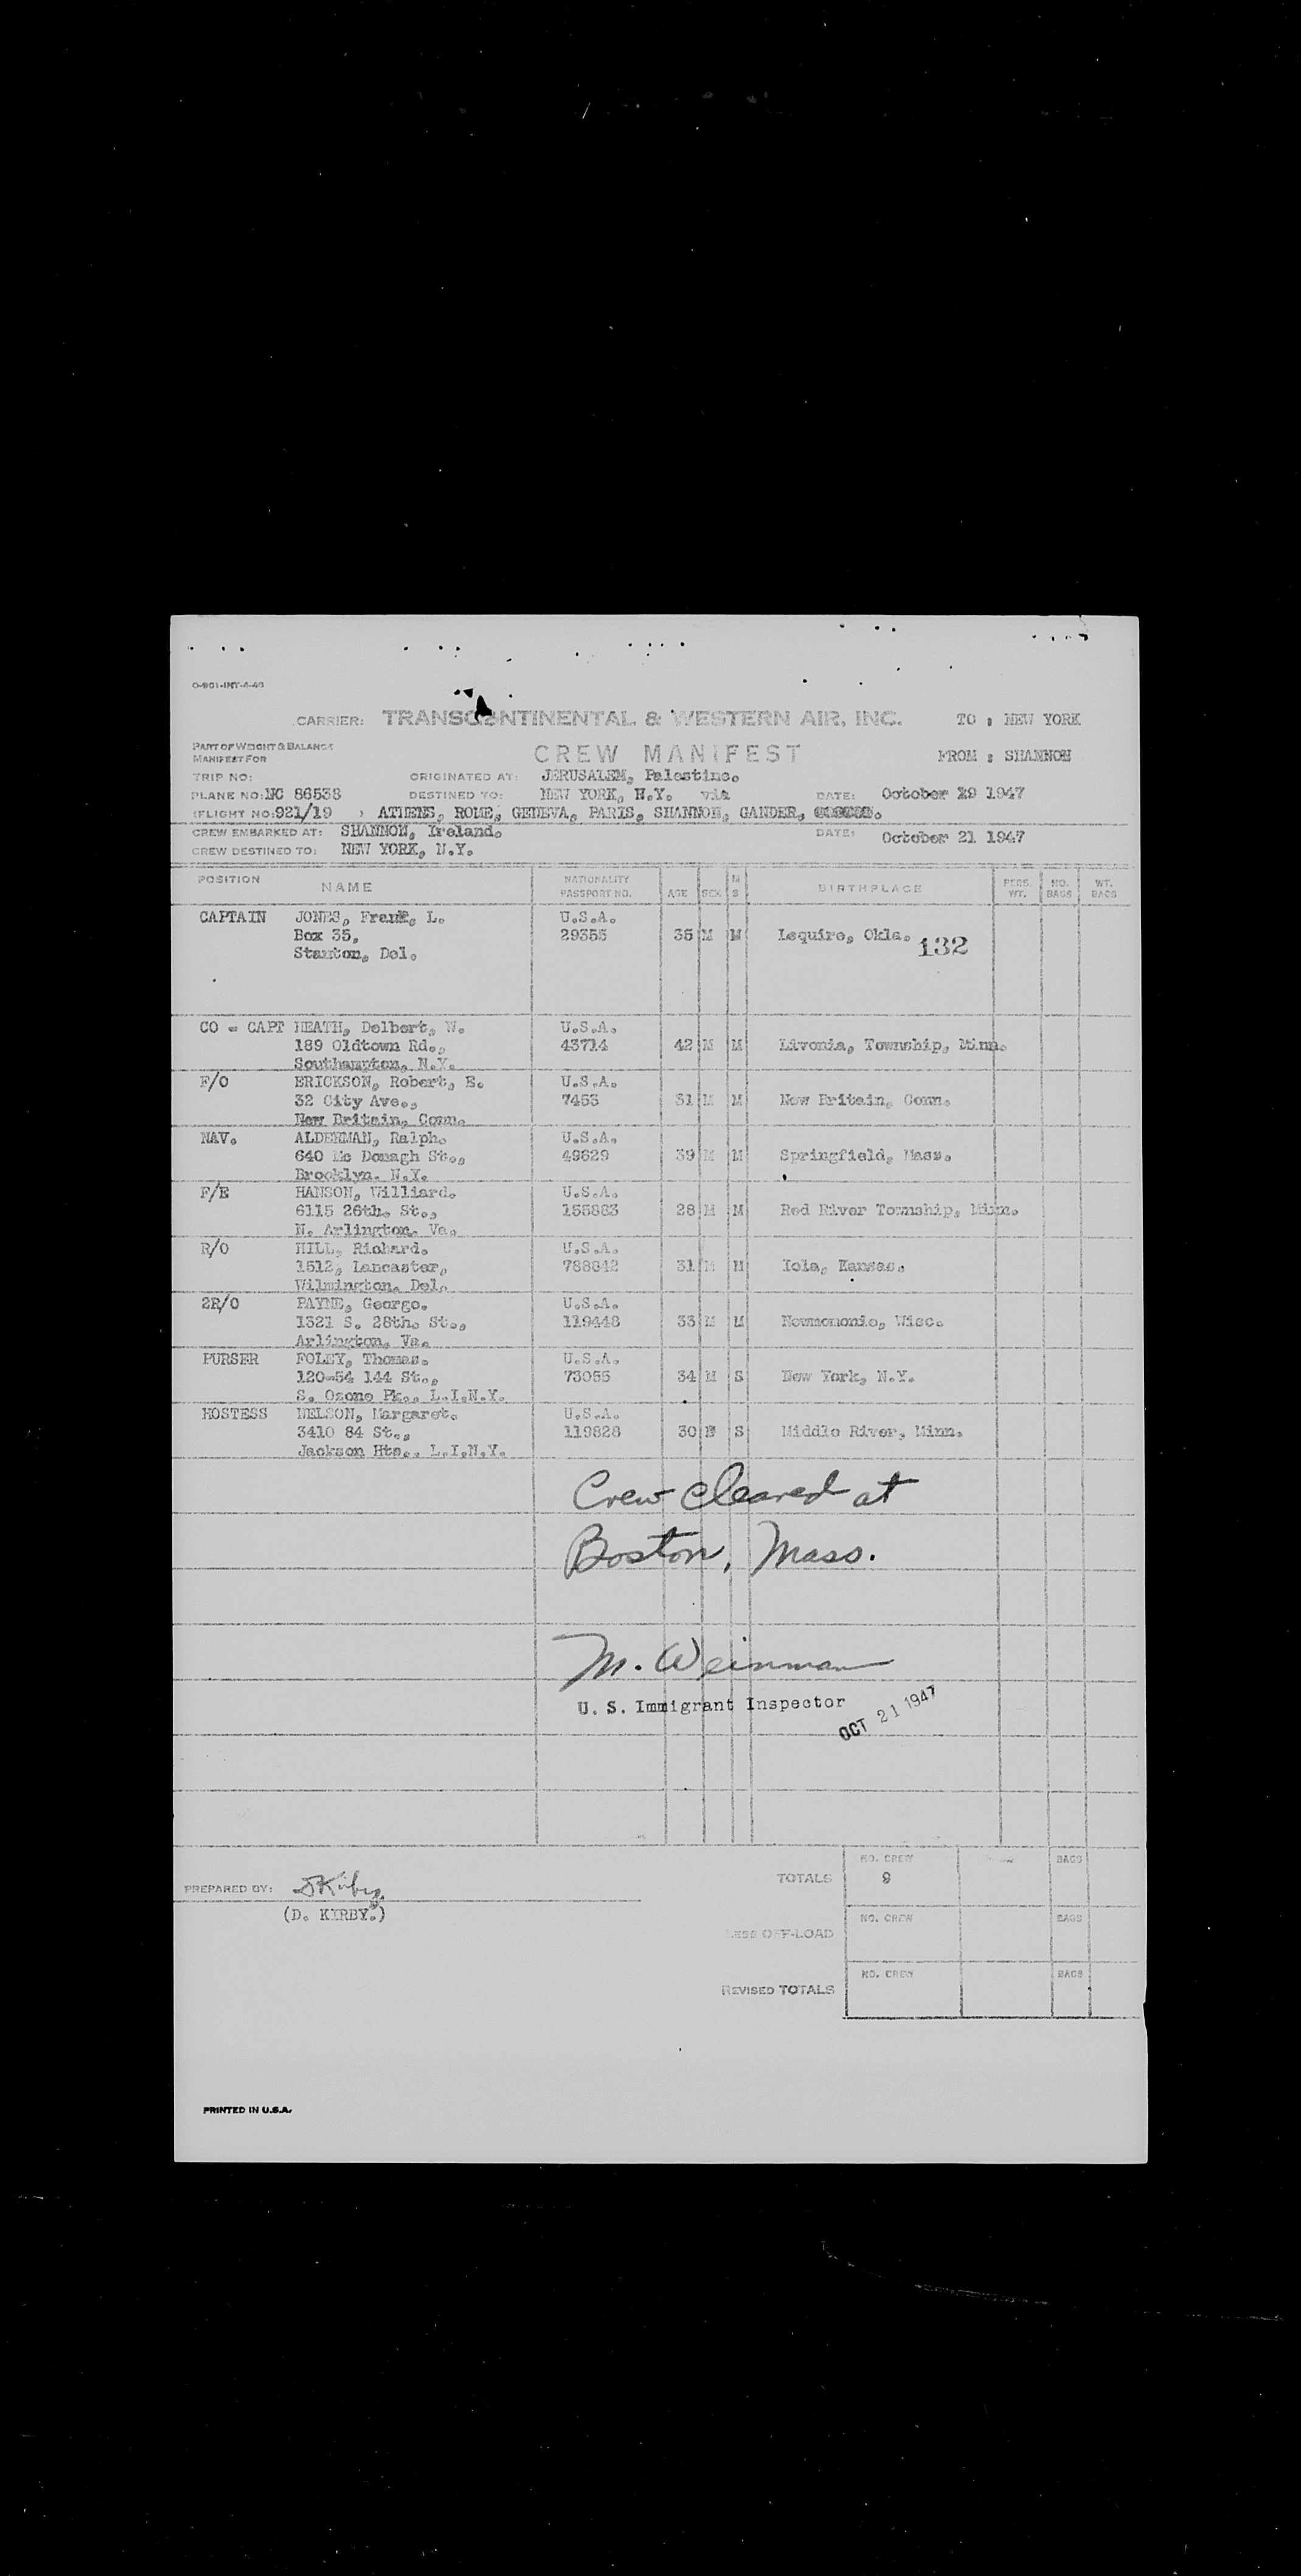 O-901-INT-4-46
CARRIER: TRANSCONTINENTAL & WESTERN AIR, INC. TO : NEW YORK
PART OF WEIGHT & BALANCE
MANIFEST FOR CREW MANIFEST FROM : SHANNON
TRIP NO: ORIGINATED AT: JERUSALEM, Palestine.
PLANE NO: NC 86538 DESTINED TO: NEW YORK, N.Y. via DATE: October 19 1947
FLIGHT NO: 921/19 ATHENS, ROME, GENEVA, PARIS, SHANNON, GANDER,
CREW EMBARKED AT: SHANNON, Ireland. DATE: October 21 1947
CREW DESTINED TO: NEW YORK, N.Y.
POSITION NAME NATIONALITY PASSPORT NO. AGE SEX M S BIRTHPLACE PERS. WT. NO. BAGS WT. BAGS
CAPTAIN JONES, Frank, L. U.S.A.
Box 35, 29355 35 M M Lequire, Okla. 132
Stanton, Del.
CO - CAPT HEATH, Delbert, W. U.S.A.
189 Oldtown Rd., 43714 42 M M Livonia, Township, Minn.
Southampton, N.Y.
F/O ERICKSON, Robert, E. U.S.A.
32 City Ave., 7453 31 M M New Britain, Conn.
New Britain, Conn.
NAV. ALDERMAN, Ralph. U.S.A.
640 Mc Donagh St., 49629 39 M M Springfield, Mass.
Brooklyn. N.Y.
F/E HANSON, Williard. U.S.A.
6115 26th. St., 155883 28 M M Red River Township, Minn.
N. Arlington. Va.
R/O HILL, Richard. U.S.A.
1512, Lancaster, 788842 31 M M Iola, Kansas.
Wilmington. Del.
2R/O PAYNE, George. U.S.A.
1321 S. 28th. St., 119448 33 M M Newmomonie, Wisc.
Arlington. Va.
PURSER FOLEY, Thomas. U.S.A.
120-54 144 St., 73055 34 M S New York, N.Y.
S. Ozone Pk., L.I.N.Y.
HOSTESS NELSON, Margaret. U.S.A.
3410 84 St., 119828 30 F S Middle River, Minn.
Jackson Hts., L.I.N.Y.
Crew cleared at
Boston, Mass.
M. Weinman
U. S. Immigrant Inspector
OCT 21 1947
NO. CREW BAGS
TOTALS 9
PREPARED BY: D Kirby.
(D. KIRBY.)
NO. CREW BAGS
LESS OFF-LOAD
NO. CREW BAGS
REVISED TOTALS
PRINTED IN U.S.A.